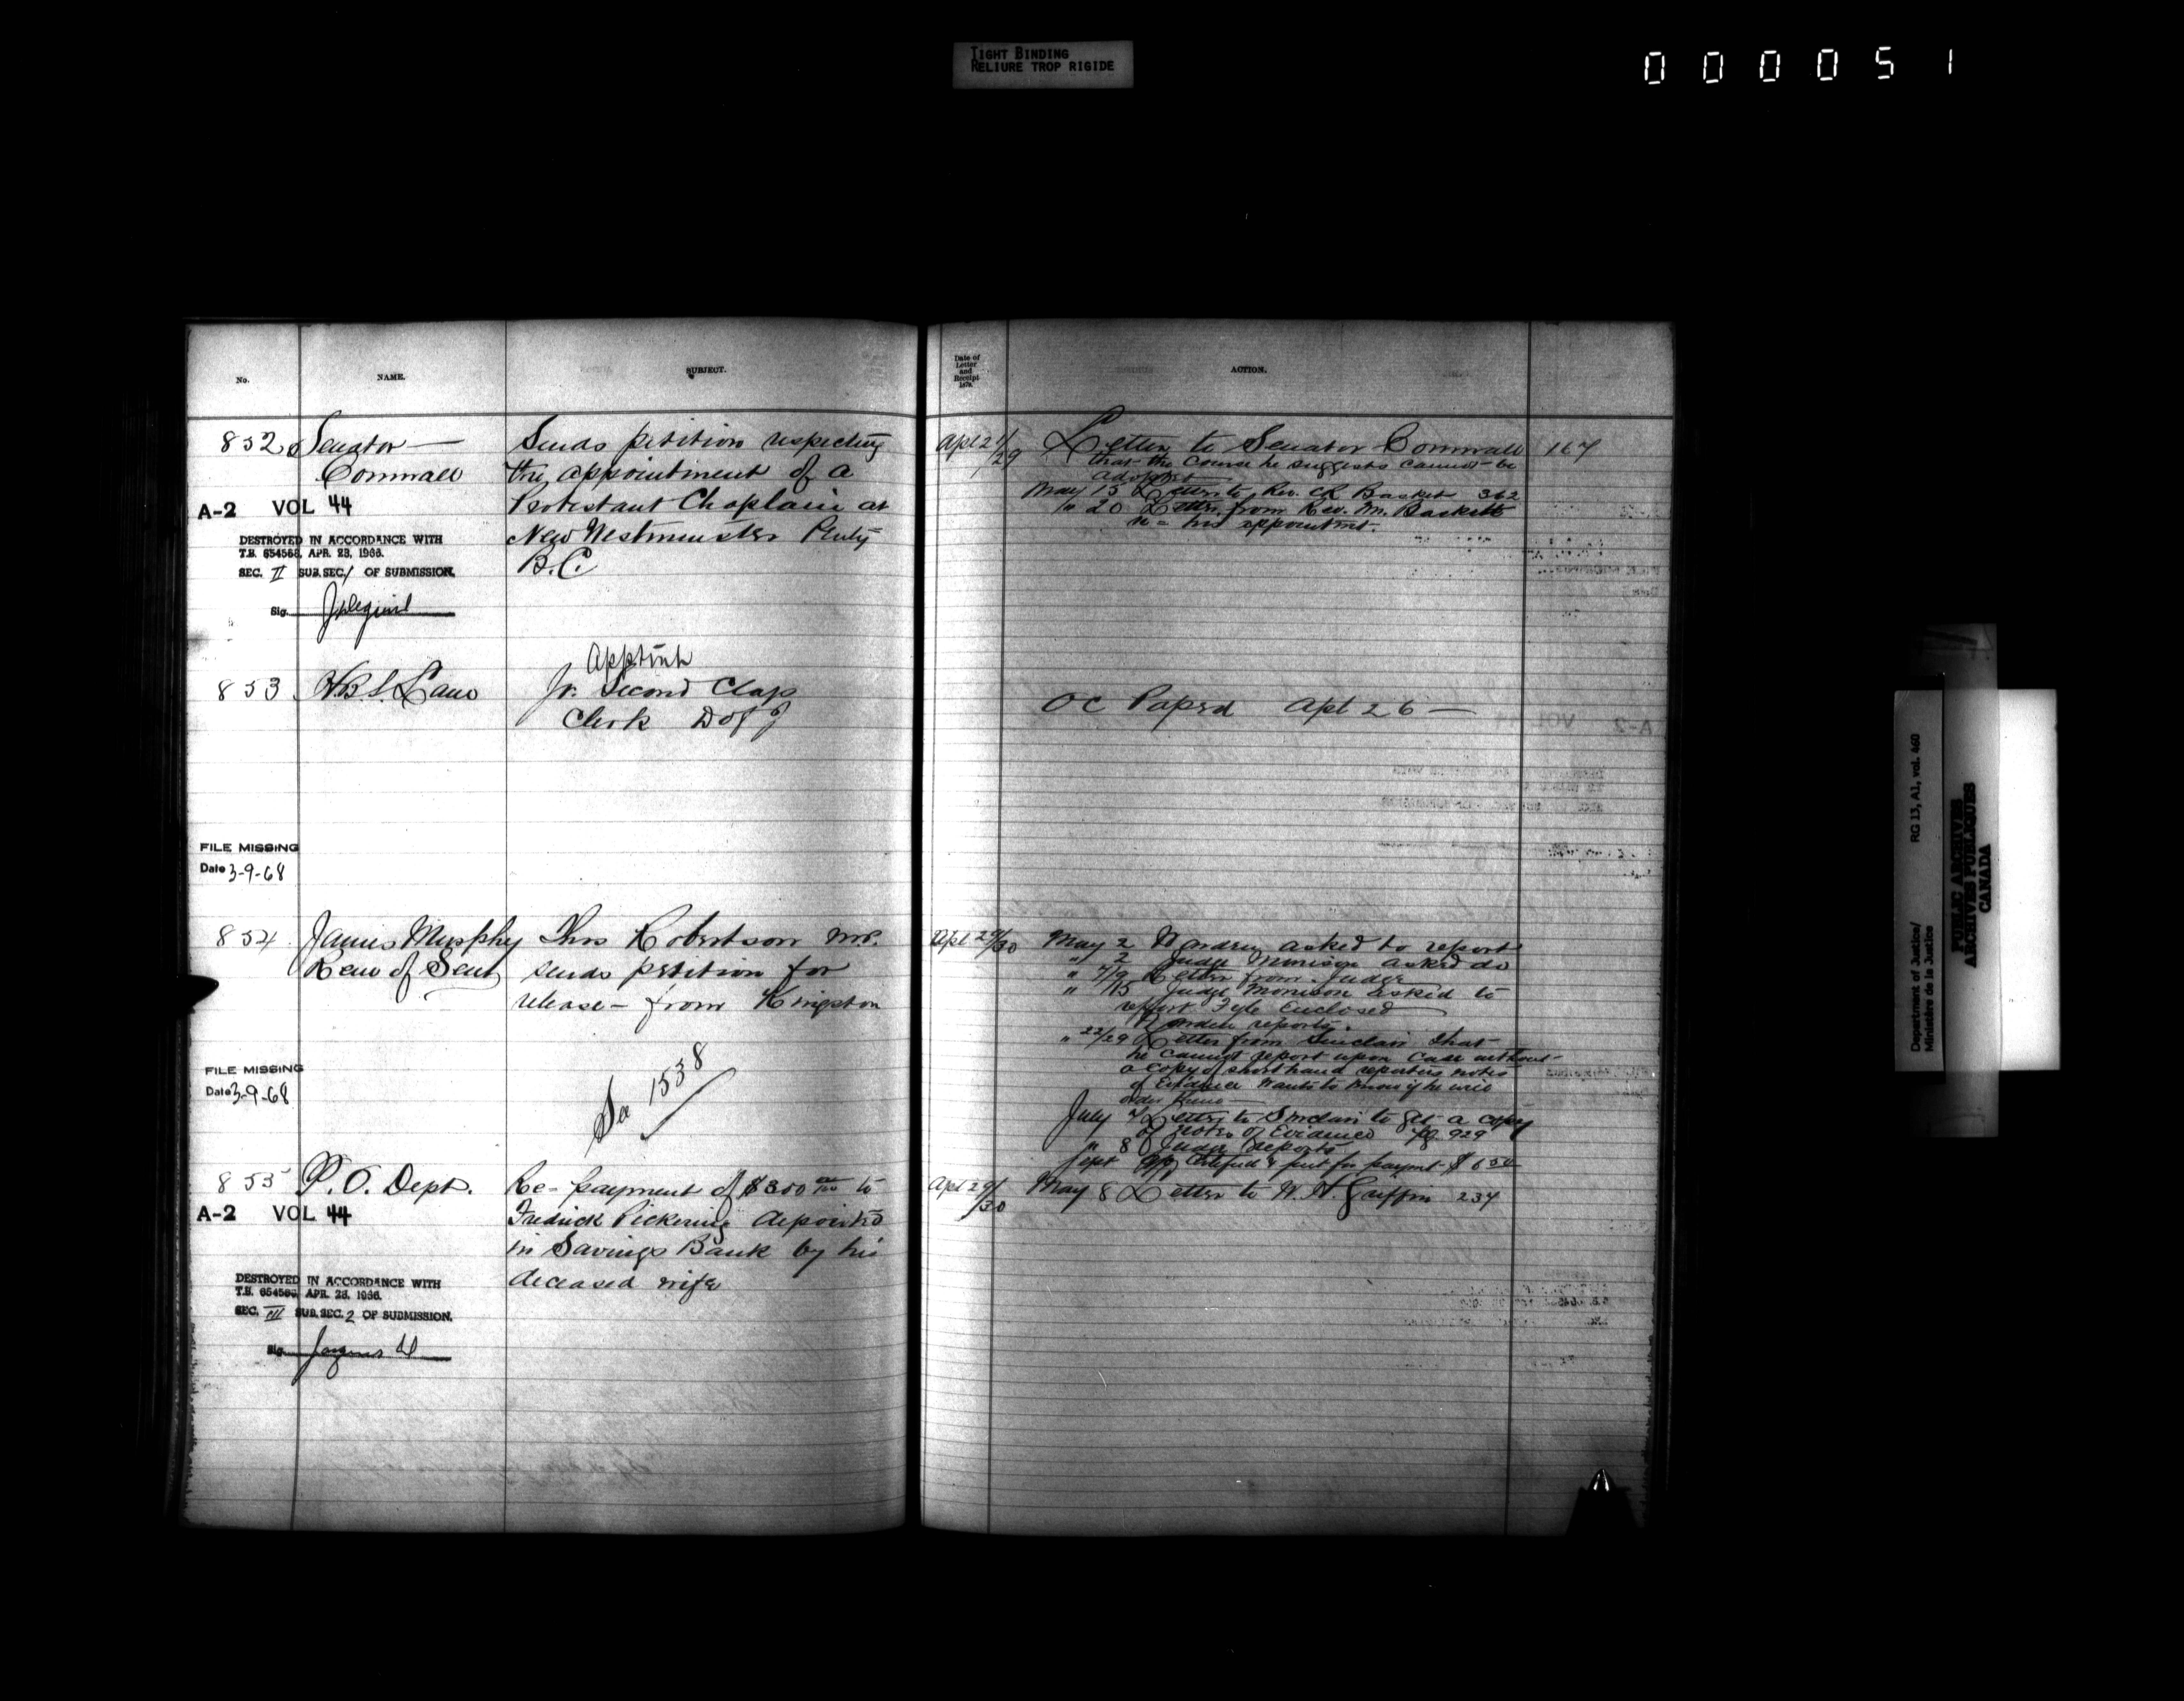 TIGHT BINDING
RELIURE TROP RIGIDE
000051
No. NAME. SUBJECT.
852 Senator — Sends petition respecting
Cornwall the appointment of a
A-2 VOL 44 Protestant Chaplain at
New Westminster Penty
DESTROYED IN ACCORDANCE WITH
T.B. 654568, APR. 28, 1966.
SEC. II SUB.SEC. 1 OF SUBMISSION.
B.C.
Sig.
853 H.B.S. Lane
Jr. Second Class
Clerk D of J
FILE MISSING
Date 3-9-68
854 James Murphy Thos Robertson M.P.
Rem of Sent sends petition for
release — from Kingston
FILE MISSING
Date 3-9-68
See 1538
855 P. O. Dept. Re-payment of $300 00/100 to
A-2 VOL 44 Fredrick Pickering deposited
in Savings Bank by his
deceased wife
DESTROYED IN ACCORDANCE WITH
T.B. 654568, APR. 28, 1966.
SEC. III SUB.SEC. 2 OF SUBMISSION.
Sig.
Date of
Letter
and
Receipt
ACTION.
Apl 21/29 Letter to Senator Cornwall 167
that the course he suggests cannot be
adopted
May 15 Letter to Rev. Basket 362
" 20 Letter from Rev. M. Baskett
re his appointmt.
OC Papsd Apl 26 —
Apl 29/30 May 2 Warden asked to report
" 2 Judge Morrison asked do
" 7/9 Letter from Judge
" 15 Judge Morrison asked to
report Fyle Enclosed
Warden reports.
" 22/29 Letter from Sinclair that
he cannot report upon case without
a copy of shorthand reporters notes
of Evidence Wants to know if he will
order
July 7 Letter to Sinclair to get a copy
of notes of Evidence pg 929
" 8 Judge reports
Sept Certified & put for paymt $6.50
Apl 29/30 May 8 Letter to W. H. Griffin 234
Department of Justice/
Ministère de la Justice
RG 13, A1, vol. 460
PUBLIC ARCHIVES
ARCHIVES PUBLIQUES
CANADA